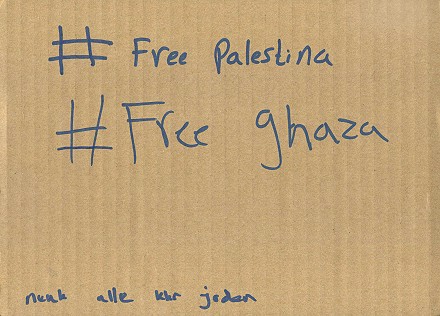 # Free Palestina
# Free ghaza
neuk alle kkr joden